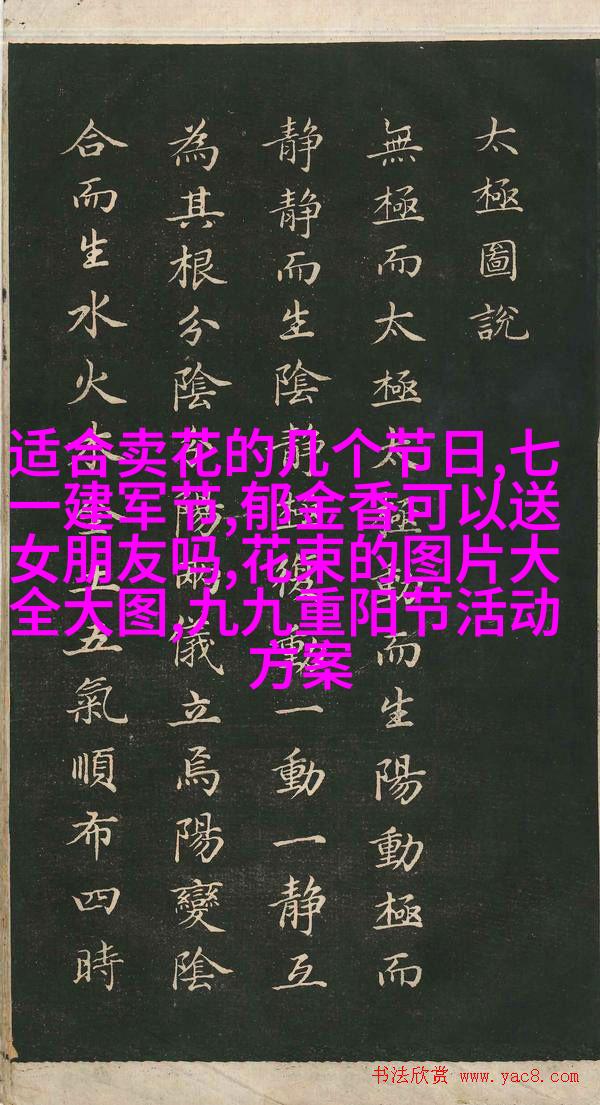 太極圖說
無極而太極太極動而生陽動極而
静静而生陰静極復動一動一静互
為其根分陰分陽兩儀立焉陽變陰
合而生水火木金土五氣順布四時
适合卖花的几个节日,七
一建军节,郁金香可以送
女朋友吗,花束的图片大
全大图,九九重阳节活动
方案
书法欣赏 www.yac8.com